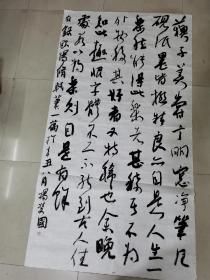 蘇子美嘗言明窓净筆几
硯紙墨皆極精良亦自是人生一
樂然能得此樂者甚稀其不为
外物移其好者又特稀也余晚
知此趣恨字體不工不能到古人佳
處若以为樂則自足有餘
右録歐陽脩試筆一篇 辛丑八月楊